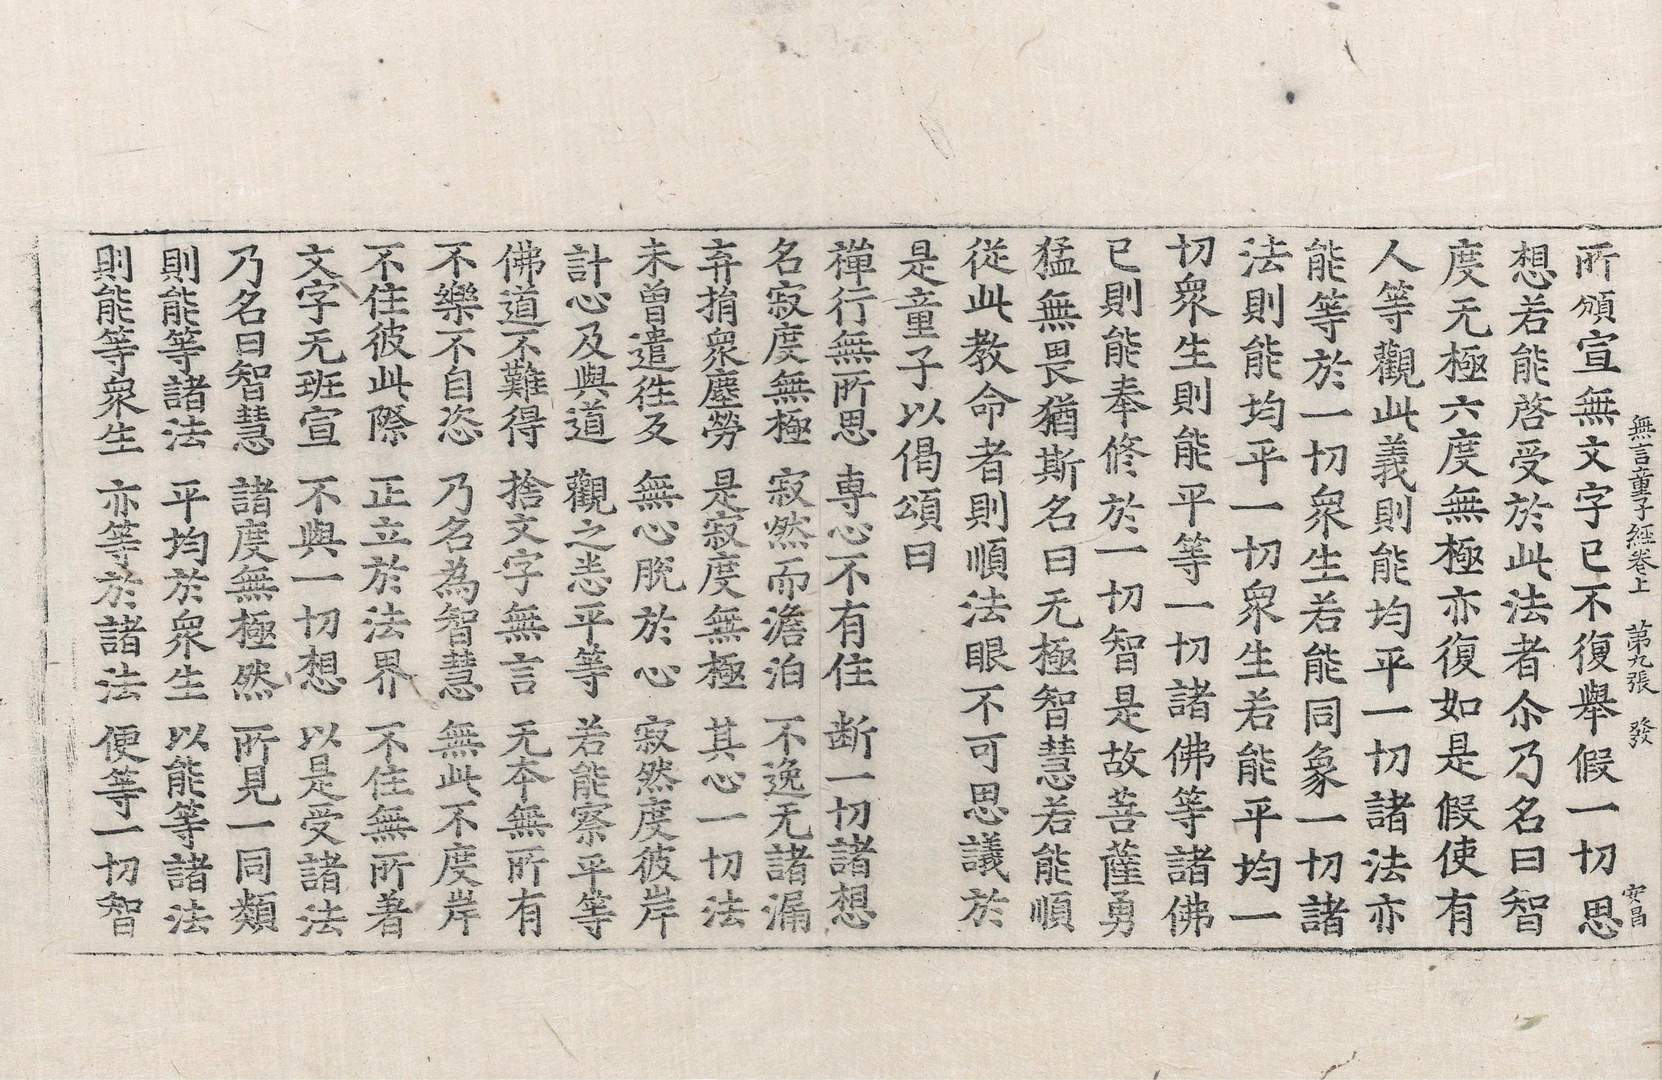 無言童子經卷上　第九張　發　安昌
所頒宣無文字已不復舉假一切思
想若能啓受於此法者尒乃名曰智
度无極六度無極亦復如是假使有
人等觀此義則能均平一切諸法亦
能等於一切衆生若能同象一切諸
法則能均平一切衆生若能平均一
切衆生則能平等一切諸佛等諸佛
已則能奉修於一切智是故菩薩勇
猛無畏猶斯名曰无極智慧若能順
從此教命者則順法眼不可思議於
是童子以偈頌曰
禪行無所思　專心不有住　断一切諸想
名寂度無極　寂然而澹泊　不逸无諸漏
弃捐衆塵勞　是寂度無極　其心一切法
未曾遣徃反　無心脫於心　寂然度彼岸
計心及與道　觀之悉平等　若能察平等
佛道不難得　捨文字無言　无本無所有
不樂不自恣　乃名為智慧　無此不度岸
不住彼此際　正立於法界　不住無所著
文字无班宣　不與一切想　以是受諸法
乃名曰智慧　諸度無極然　所見一同類
則能等諸法　平均於衆生　以能等諸法
則能等衆生　亦等於諸法　便等一切智